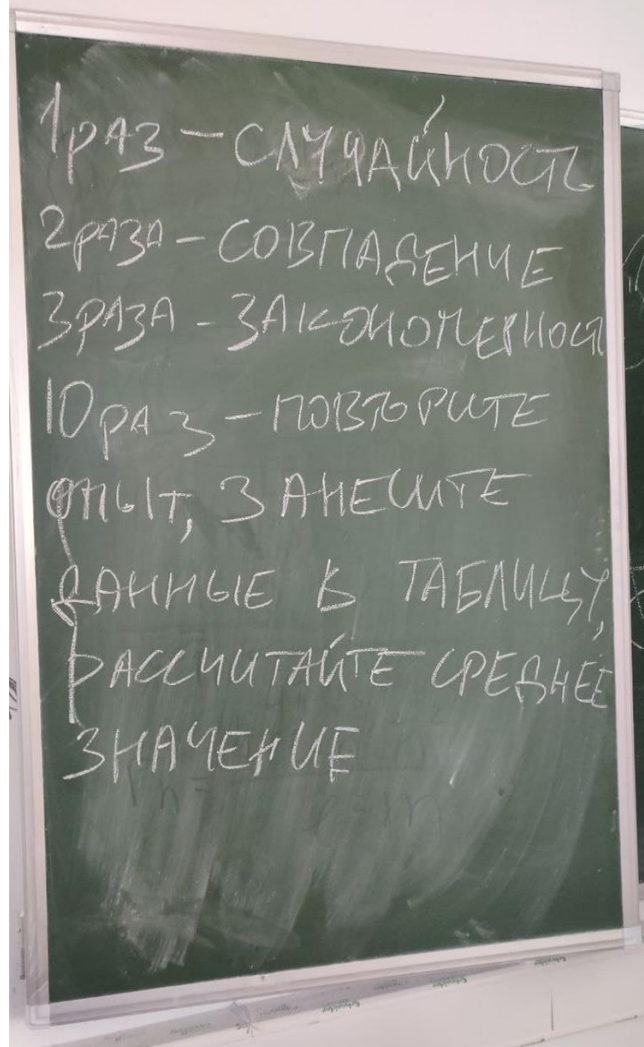 1 РАЗ – СЛУЧАЙНОСТЬ
2 РАЗА – СОВПАДЕНИЕ
3 РАЗА – ЗАКОНОМЕРНОСТЬ
10 РАЗ – ПОВТОРИТЕ
ОПЫТ, ЗАНЕСИТЕ
ДАННЫЕ В ТАБЛИЦУ,
РАССЧИТАЙТЕ СРЕДНЕЕ
ЗНАЧЕНИЕ